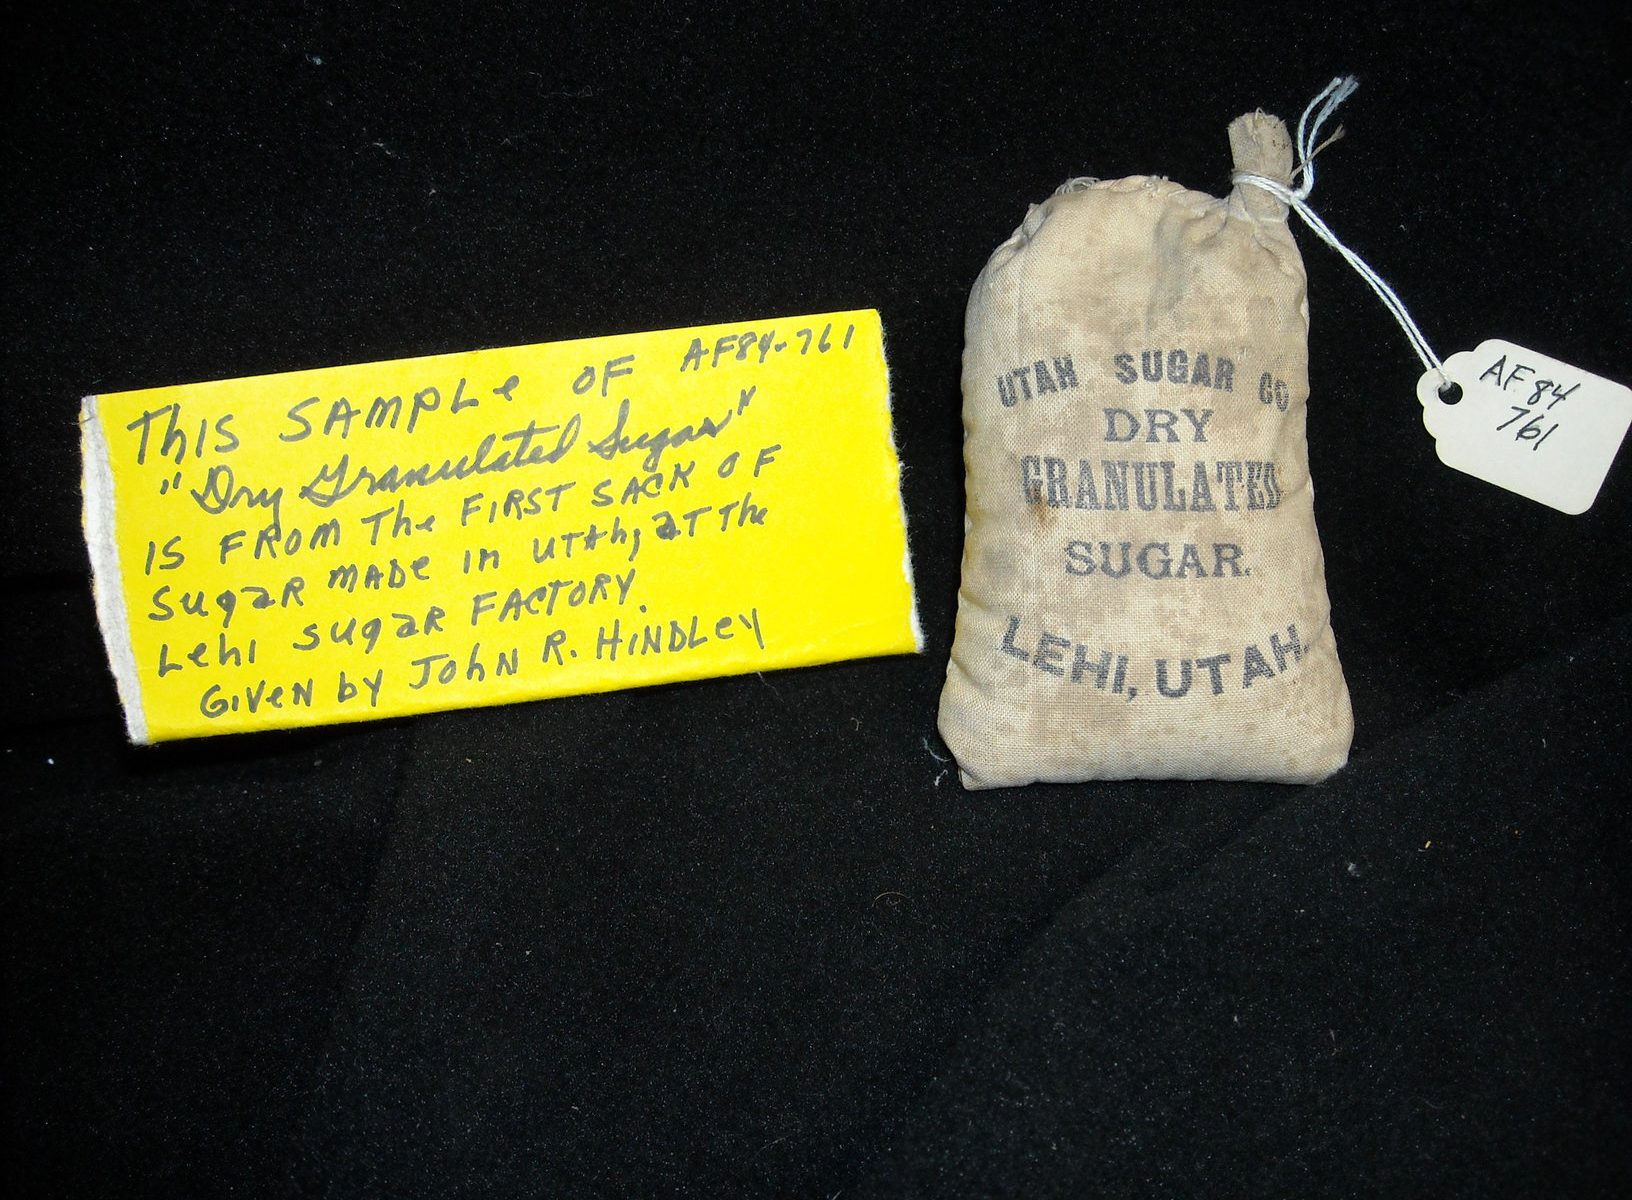 AF84-761
This SAMPLe OF
"Dry Granulated Sugar"
IS FROM The FIRST SACK OF
SugaR MADe In UTAh, aT The
Lehi SugaR FACTORY.
GIVeN by JohN R. HINDLey
UTAH SUGAR CO
DRY
GRANULATED
SUGAR.
LEHI, UTAH.
AF84
761